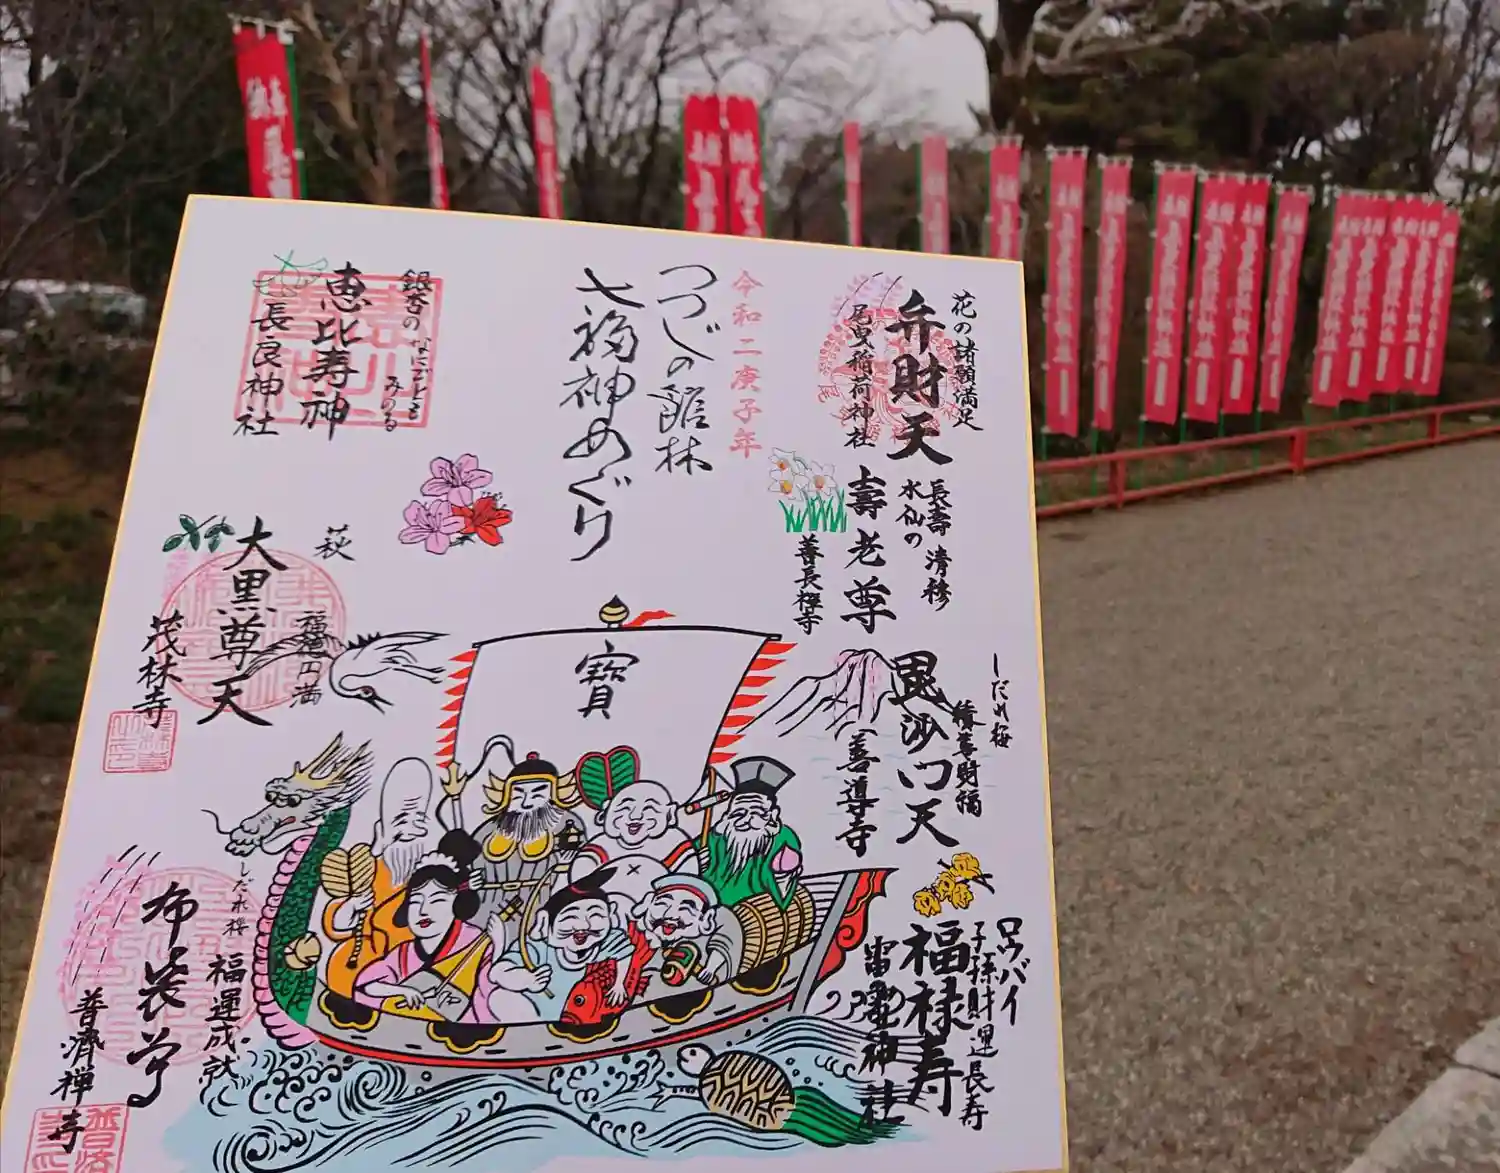 花の諸願満足
弁財天
尾曳稲荷神社
長壽 清穆
水仙の
壽老尊
善長禅寺
しだれ梅
積善財福
毘沙門天
善導寺
ロウバイ
子孫財運長寿
福禄寿
雷電神社
令和二庚子年
つつじの館林
七福神めぐり
寶
銀杏の
みのる
恵比寿神
長良神社
萩
福徳円満
大黒尊天
茂林寺
しだれ桜
福運成就
布袋尊
普済禅寺